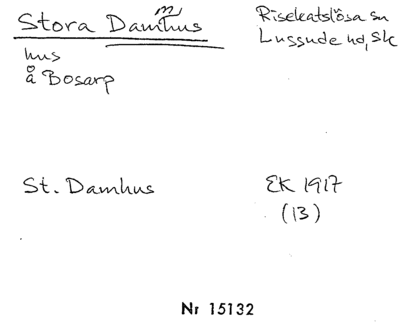 Stora Dammhus
hus
å Bosarp
Risekatslösa sn
Luggude hd, Sk
St. Damhus
EK 1917
(13)
Nr 15132